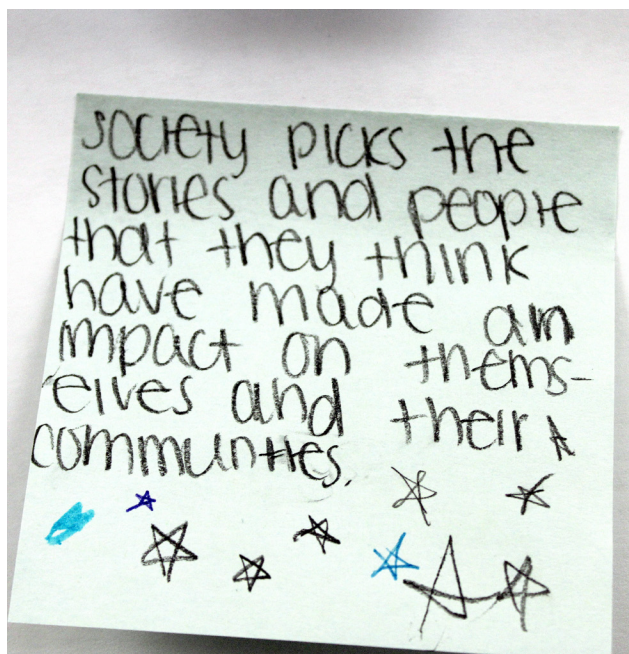 society picks the
stories and people
that they think
have made an
impact on thems-
elves and their
communities.